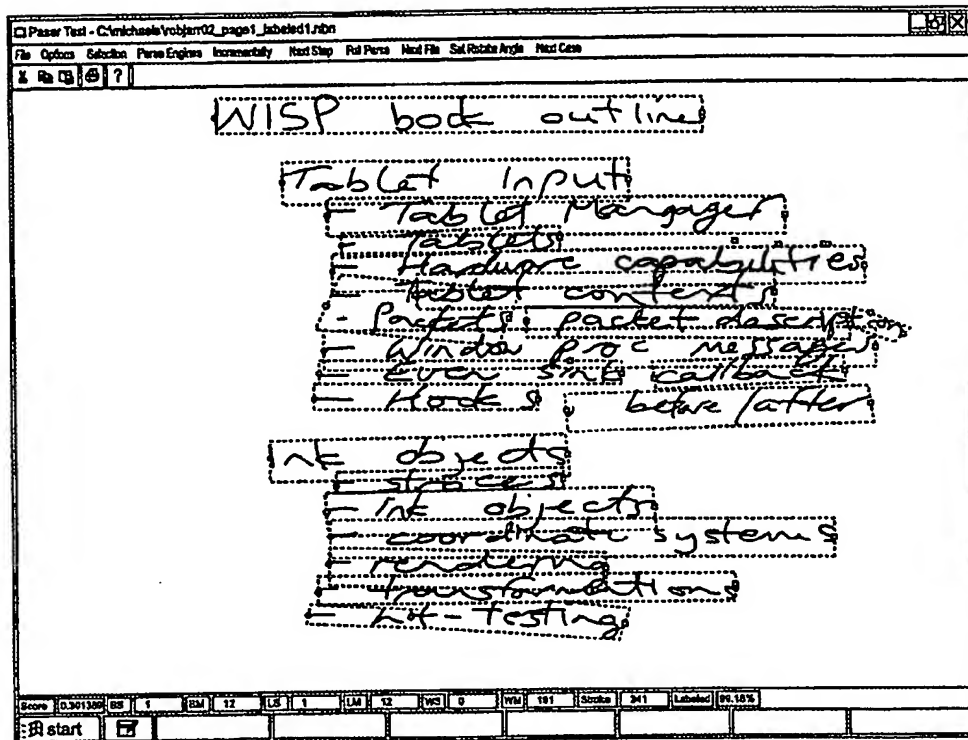 Paser Test - C:\michaels\robjarr02_page1_labeled1.nbn
File Options Selection Parse Engines Incrementally Next Step Full Parse Next File Set Rotate Angle Next Case
?
WISP book outline
Tablet Input
- Tablet Mangager
- Tablets
- Hardware capabilities
- Tablet contexts
- Packets, packet descriptions
- Window proc messages
- Even sink callback
- Hooks before/after
Ink objects
- stroces
- ink objects
- coordinate systems
- rendering
- transformations
- hit-testing
Score 0.301389 BS 1 BM 12 LS 1 LM 12 WS 0 WM 191 Stroke 341 Labeled 99.18%
start